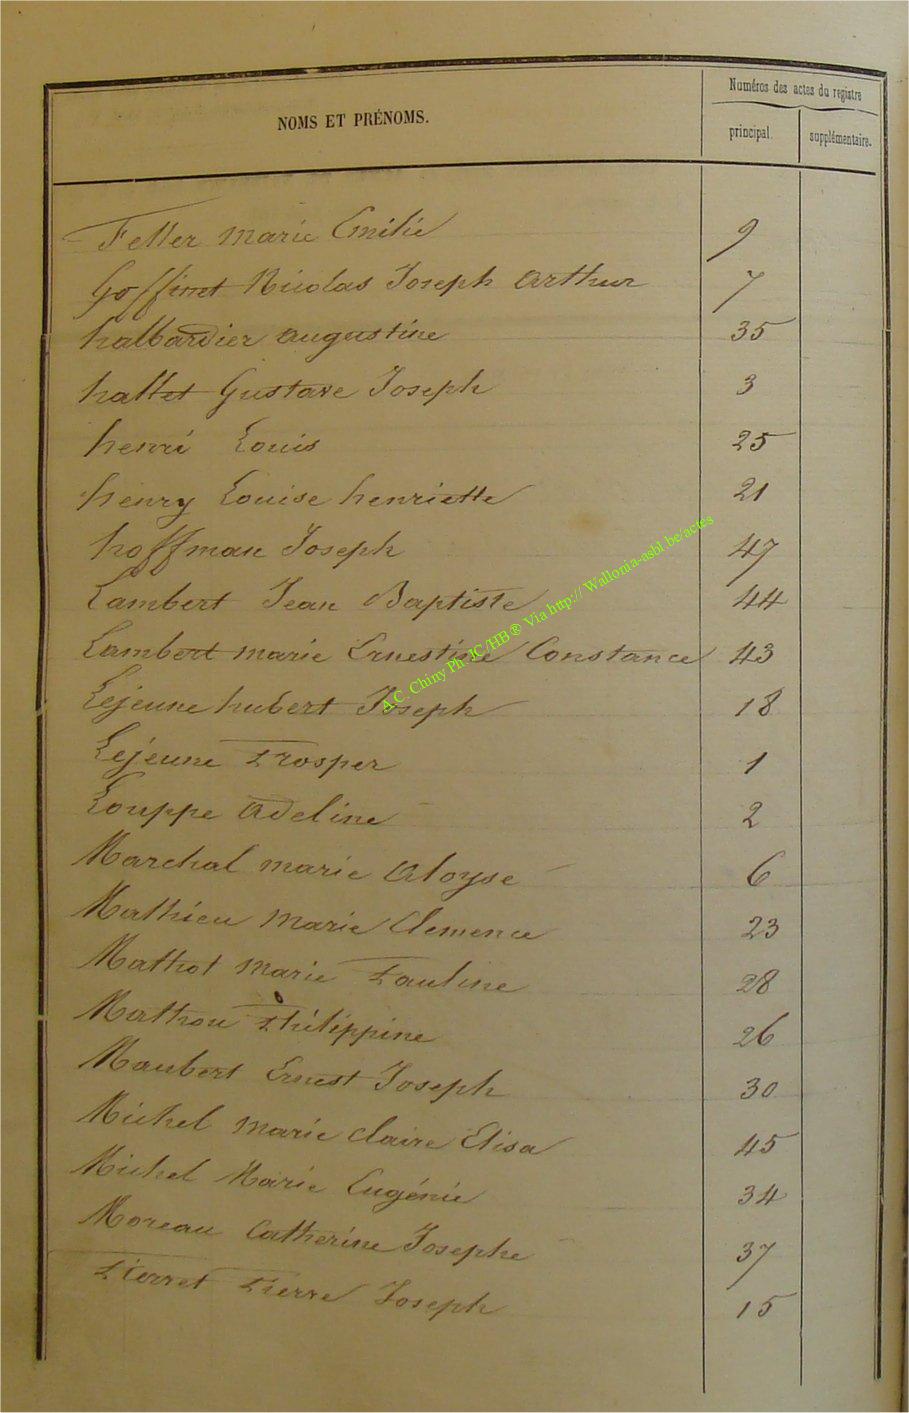 Numéros des actes du registre
NOMS ET PRÉNOMS.
principal. supplémentaire.
Feller Marie Emilie 9
Goffinet Nicolas Joseph Arthur 7
halbardier augustine 35
hallet Gustave Joseph 3
henri Louis 25
henry Louise henriette 21
hoffman Joseph 47
Lambert Jean Baptiste 44
Lambert marie Ernestine Constance 43
Lejeune hubert Joseph 18
Lejeune Prosper 1
Louppe Adeline 2
Marchal marie Aloyse 6
Mathieu Marie Clemence 23
Mathot Marie Pauline 28
Mathou Philippine 26
Maubert Ernest Joseph 30
Michel Marie Claire Elisa 45
Michel Marie Eugénie 34
Moreau Catherine Josephe 37
Pierret Pierre Joseph 15
A.C. Chiny Ph. JC/HB® Via http:// Wallonia-asbl.be/actes